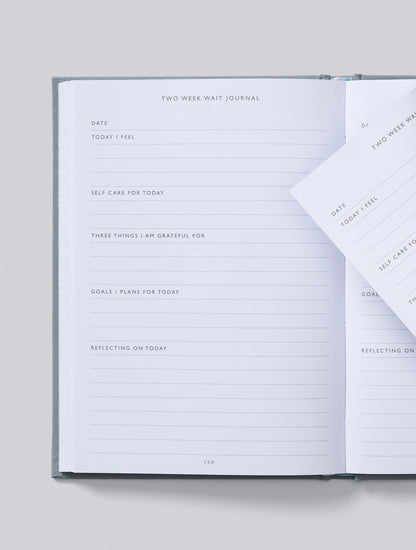 TWO WEEK WAIT JOURNAL
DATE
TODAY I FEEL
SELF CARE FOR TODAY
THREE THINGS I AM GRATEFUL FOR
GOALS / PLANS FOR TODAY
REFLECTING ON TODAY
TWO WEEK WAIT
DATE
TODAY I FEEL
SELF CARE FO
TH
GOALS
REFLECTING ON TODAY